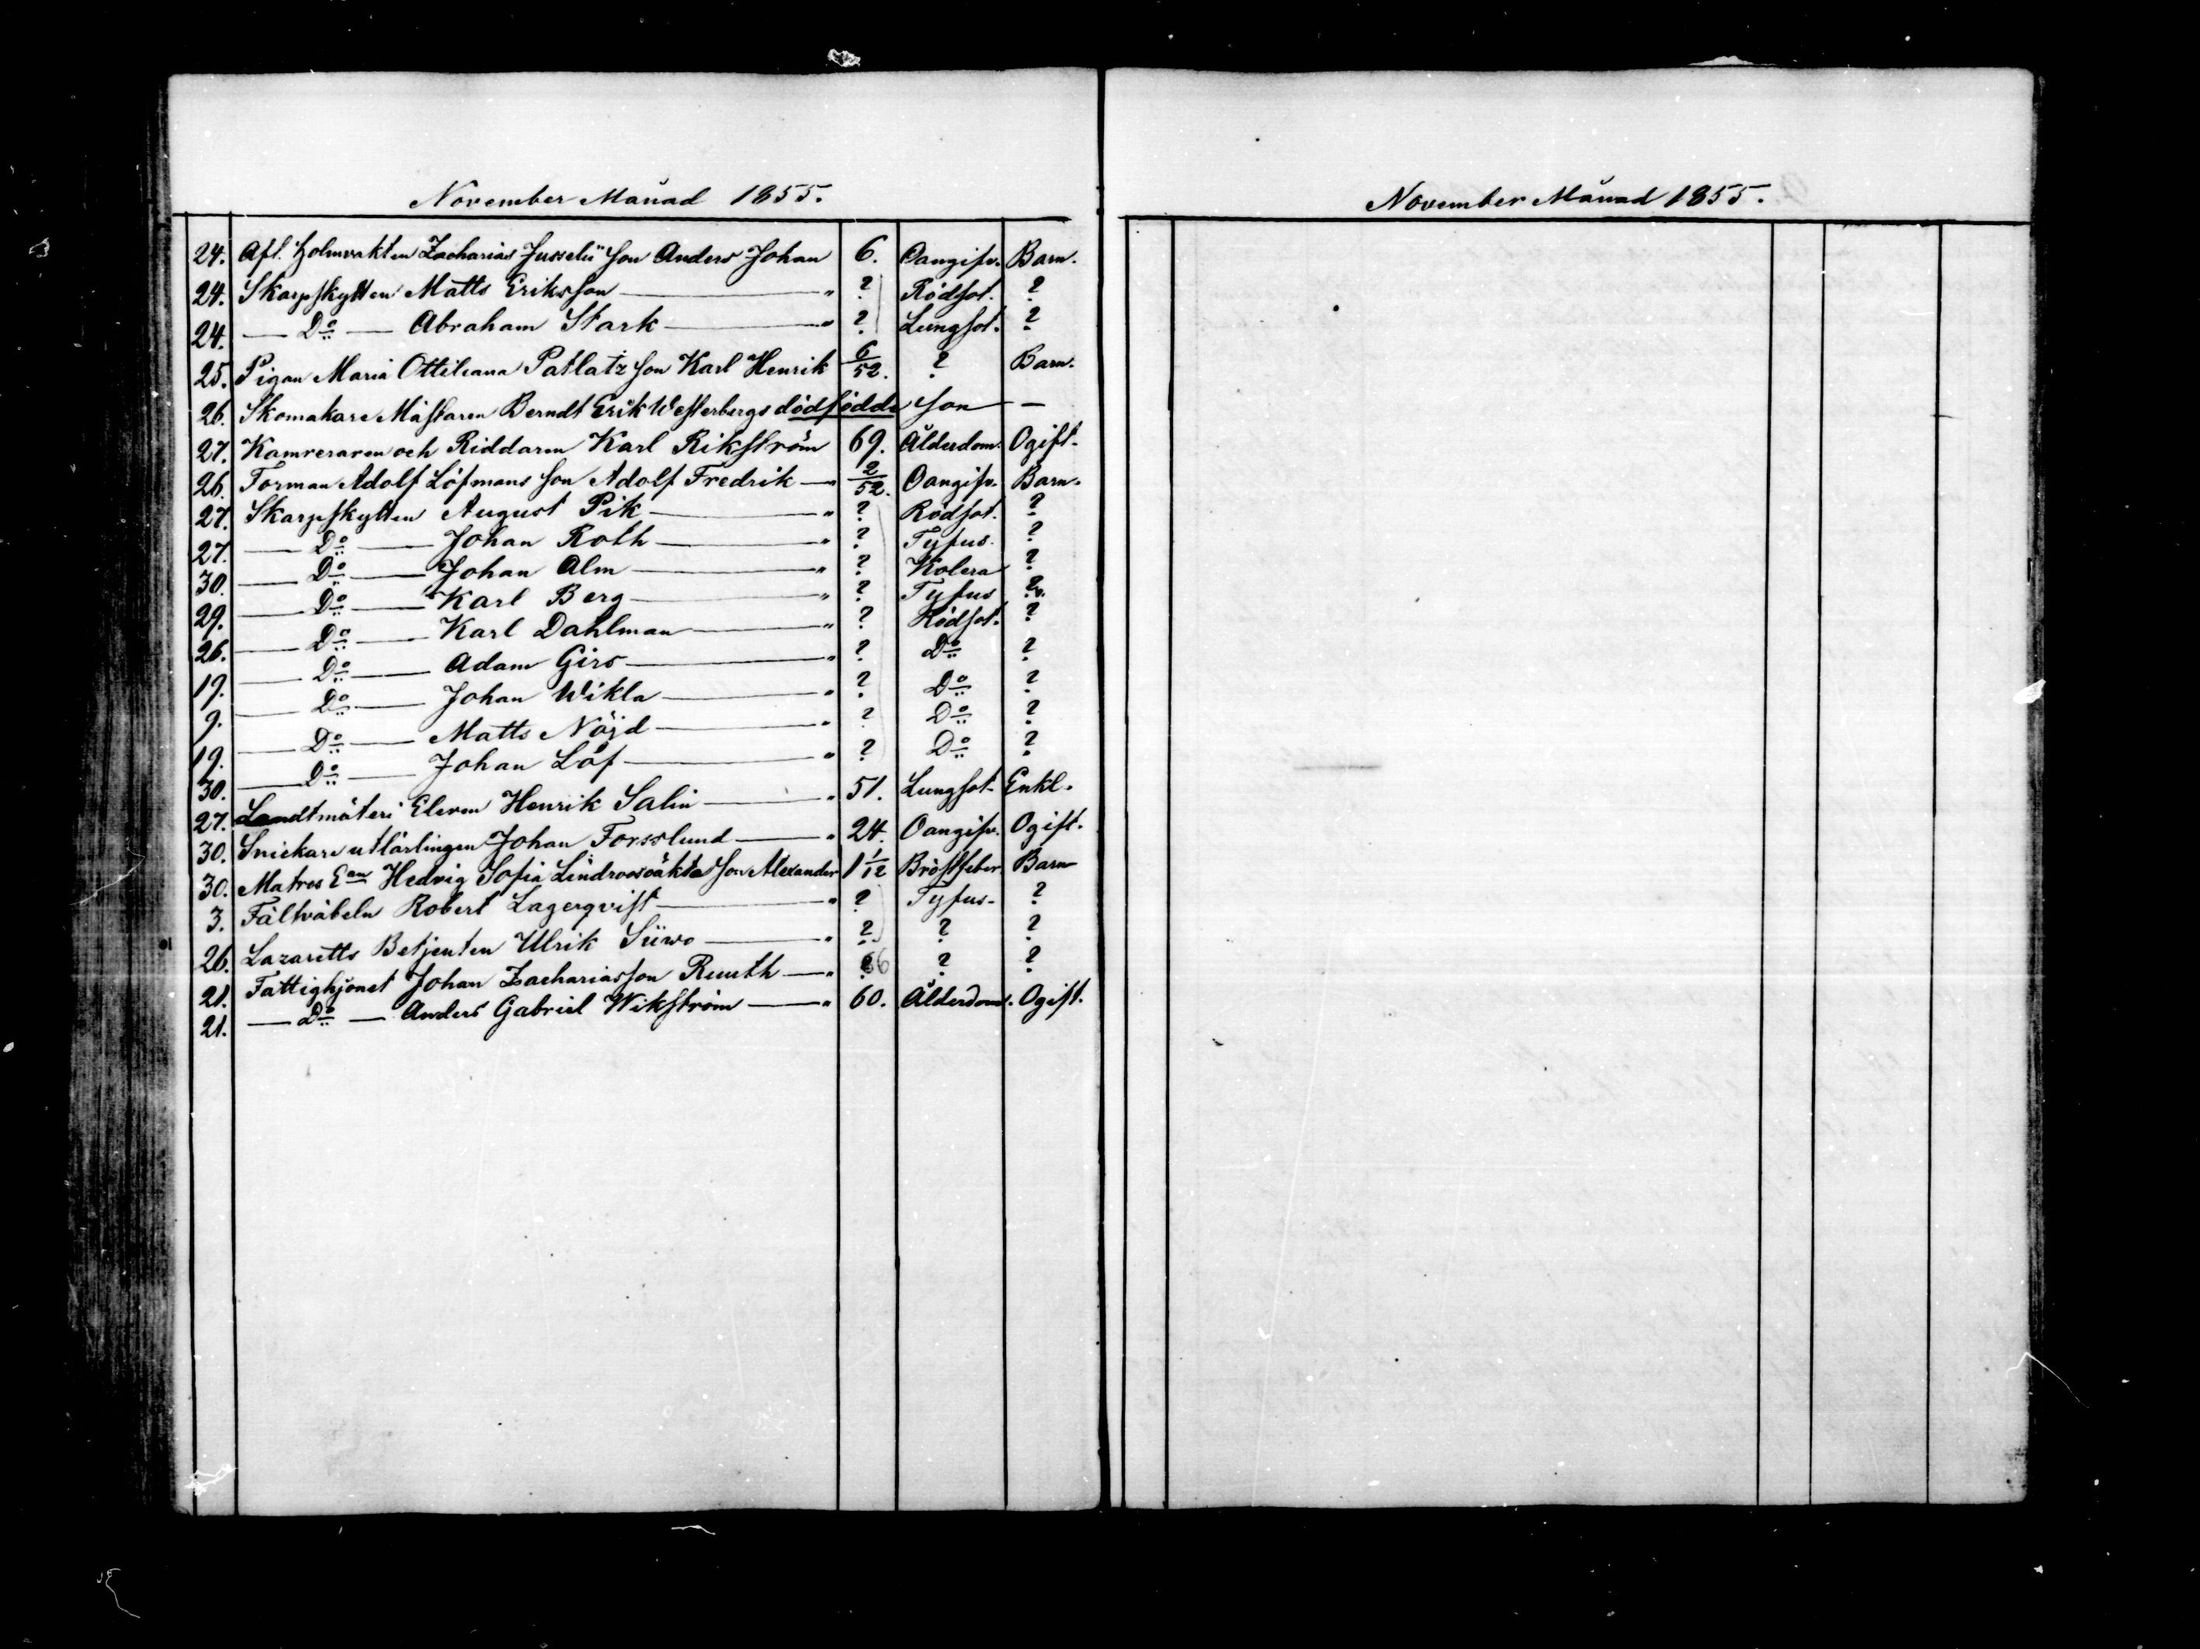 November Månad 1855.
24. Afl. Holmvakten Zacharias Jusselii Son Anders Johan 6. Oangifv. Barn.
24. Skarpskytten Matts Eriksson — " ? Rödsot. ?
24. — Do — Abraham Stark — " ? Lungsot. ?
25. Pigan Maria Ottiliana Patlatz son Karl Henrik 6/52. ? Barn.
26. Skomakare Mästaren Berndt Erik Westerbergs dödfödde Son —
27. Kamreraren och Riddaren Karl Rikström 69. Ålderdom. Ogift.
26. Forman Adolf Löfmans son Adolf Fredrik — " 2/52. Oangifv. Barn.
27. Skarpskytten August Pik — " ? Rödsot. ?
27. — Do — Johan Roth — " ? Tyfus. ?
30. — Do — Johan Alm — " ? Kolera ?
29. — Do — Karl Berg — " ? Tyfus ?
26. — Do — Karl Dahlman — " ? Rödsot. ?
19. — Do — Adam Girs — " ? Do ?
9. — Do — Johan Wikla — " ? Do ?
19. — Do — Matts Nöjd — " ? Do ?
30. — Do — Johan Löf — " ? Do ?
27. Landtmäteri Eleven Henrik Salin — " 51. Lungsot. Enkl.
30. Snickare utlärlingen Johan Forsslund — " 24. Oangifv. Ogift.
30. Matros Ean Hedvig Sofia Lindroos oäkta Son Alexander 1 1/12 Bröstfeber Barn
3. Fältväbeln Robert Lagerqvist — " ? Tyfus. ?
26. Lazaretts Betjenten Ulrik Süwo — " ? ? ?
21. Fattighjonet Johan Zachariasson Ruuth — " 66 ? ?
21. — Do — Anders Gabriel Wikström — " 60. Ålderdom. Ogift.
November Månad 1855.